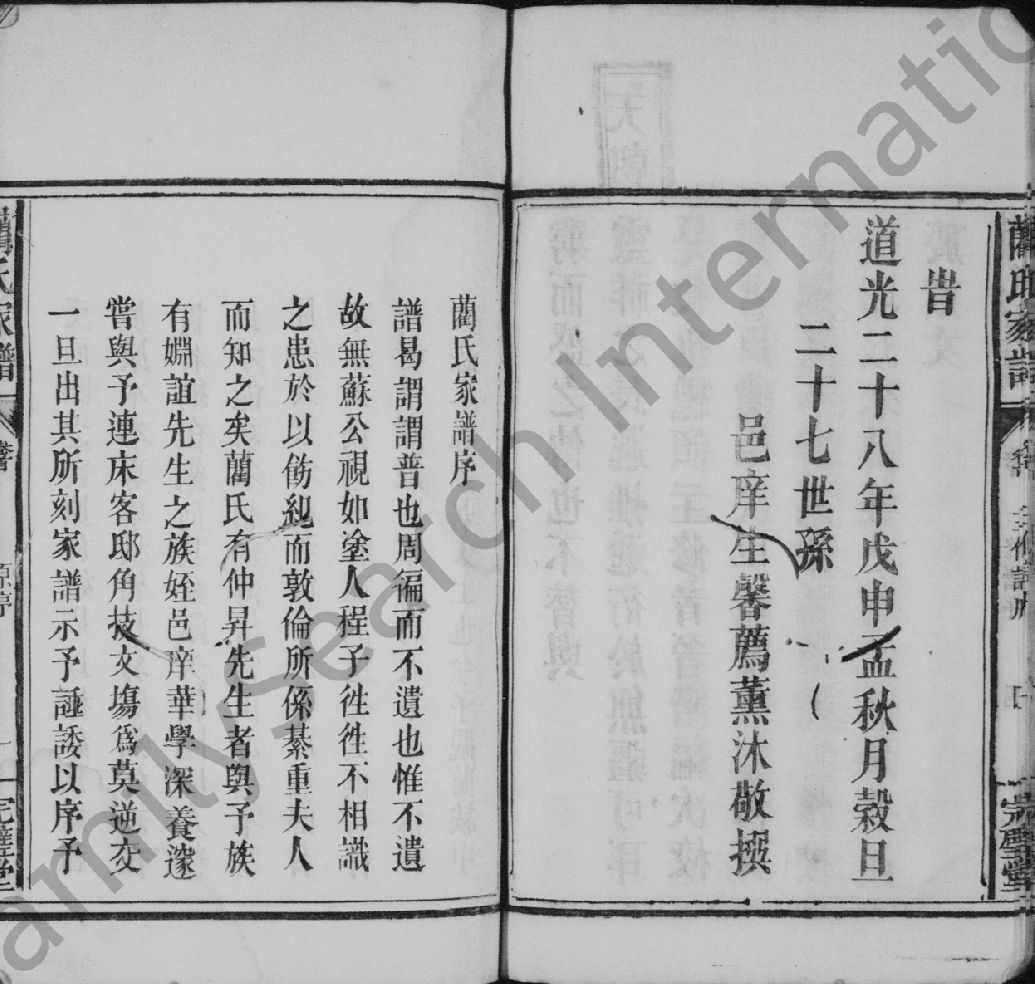 藺氏家譜
完璧堂
旹
道光二十八年戊申孟秋月穀旦
二十七世孫
邑庠生馨薦薰沐敬撰
藺氏家譜序
譜曷謂謂普也周徧而不遺也惟不遺
故無蘇公視如塗人程子徃徃不相識
之患於以飭紀而敦倫所係綦重夫人
而知之矣藺氏有仲昇先生者與予族
有婣誼先生之族姪邑庠華學深養邃
嘗與予連床客邸角技文塲爲莫逆交
一旦出其所刻家譜示予諈諉以序予
氏家譜
完璧堂
FamilySearch International